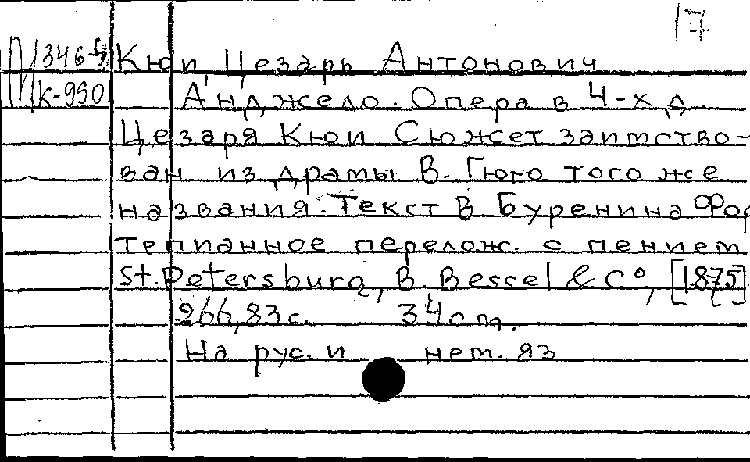 17
1346 Кюи, Цезарь Антонович
К-930 Анджело. Опера в 4-х д.
Цезаря Кюи Сюжет заимство-
ван из драмы В. Гюго того же
названия. Текст В Буренина Фор
тепианное перелож. с пением
St. Petersburg, B. Bessel & C°, [1875]
266,83 с. 34 cm.
На рус. и нем. яз